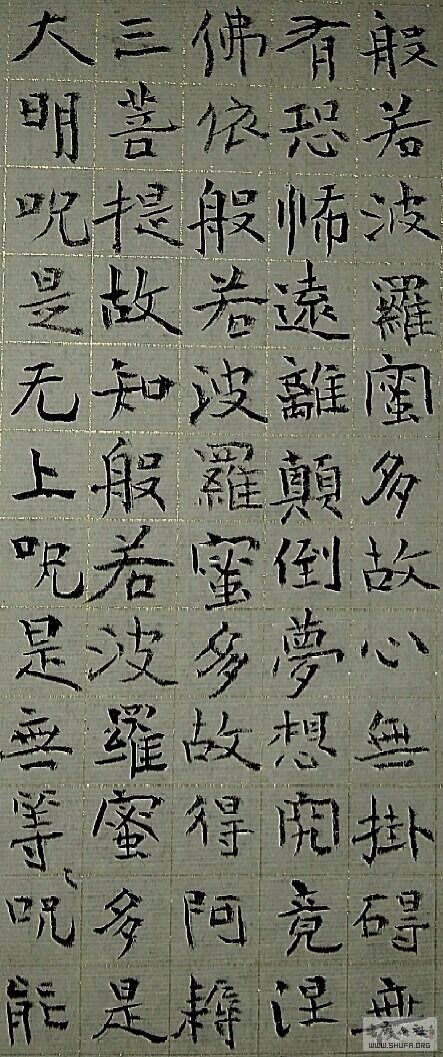 般若波羅蜜多故心無掛碍無
有恐怖遠離顛倒夢想究竟涅
佛依般若波羅蜜多故得阿耨
三菩提故知般若波羅蜜多是
大明呪是无上呪是無等〻呪能
WWW.SHUFA.ORG